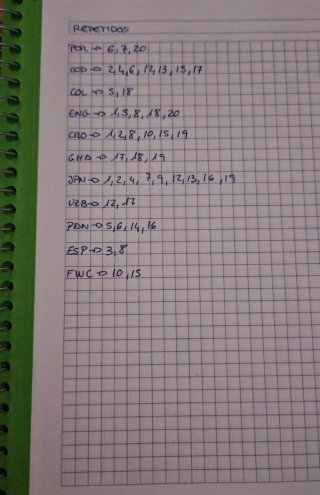 REPETIDOS
POR → 6, 7, 20
COD → 2, 4, 6, 12, 13, 15, 17
COL → 5, 18
ENG → 1, 3, 8, 18, 20
CRO → 1, 2, 8, 10, 15, 19
GHA → 17, 18, 19
JPN → 1, 2, 4, 7, 9, 12, 13, 16, 19
UZB → 12, 17
PAN → 5, 6, 14, 16
ESP → 3, 8
FWC → 10, 15